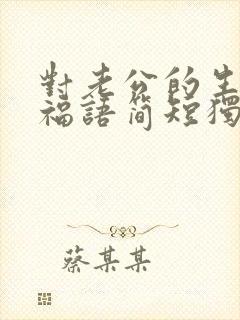 對老公的生
福語簡短獨
蔡某某